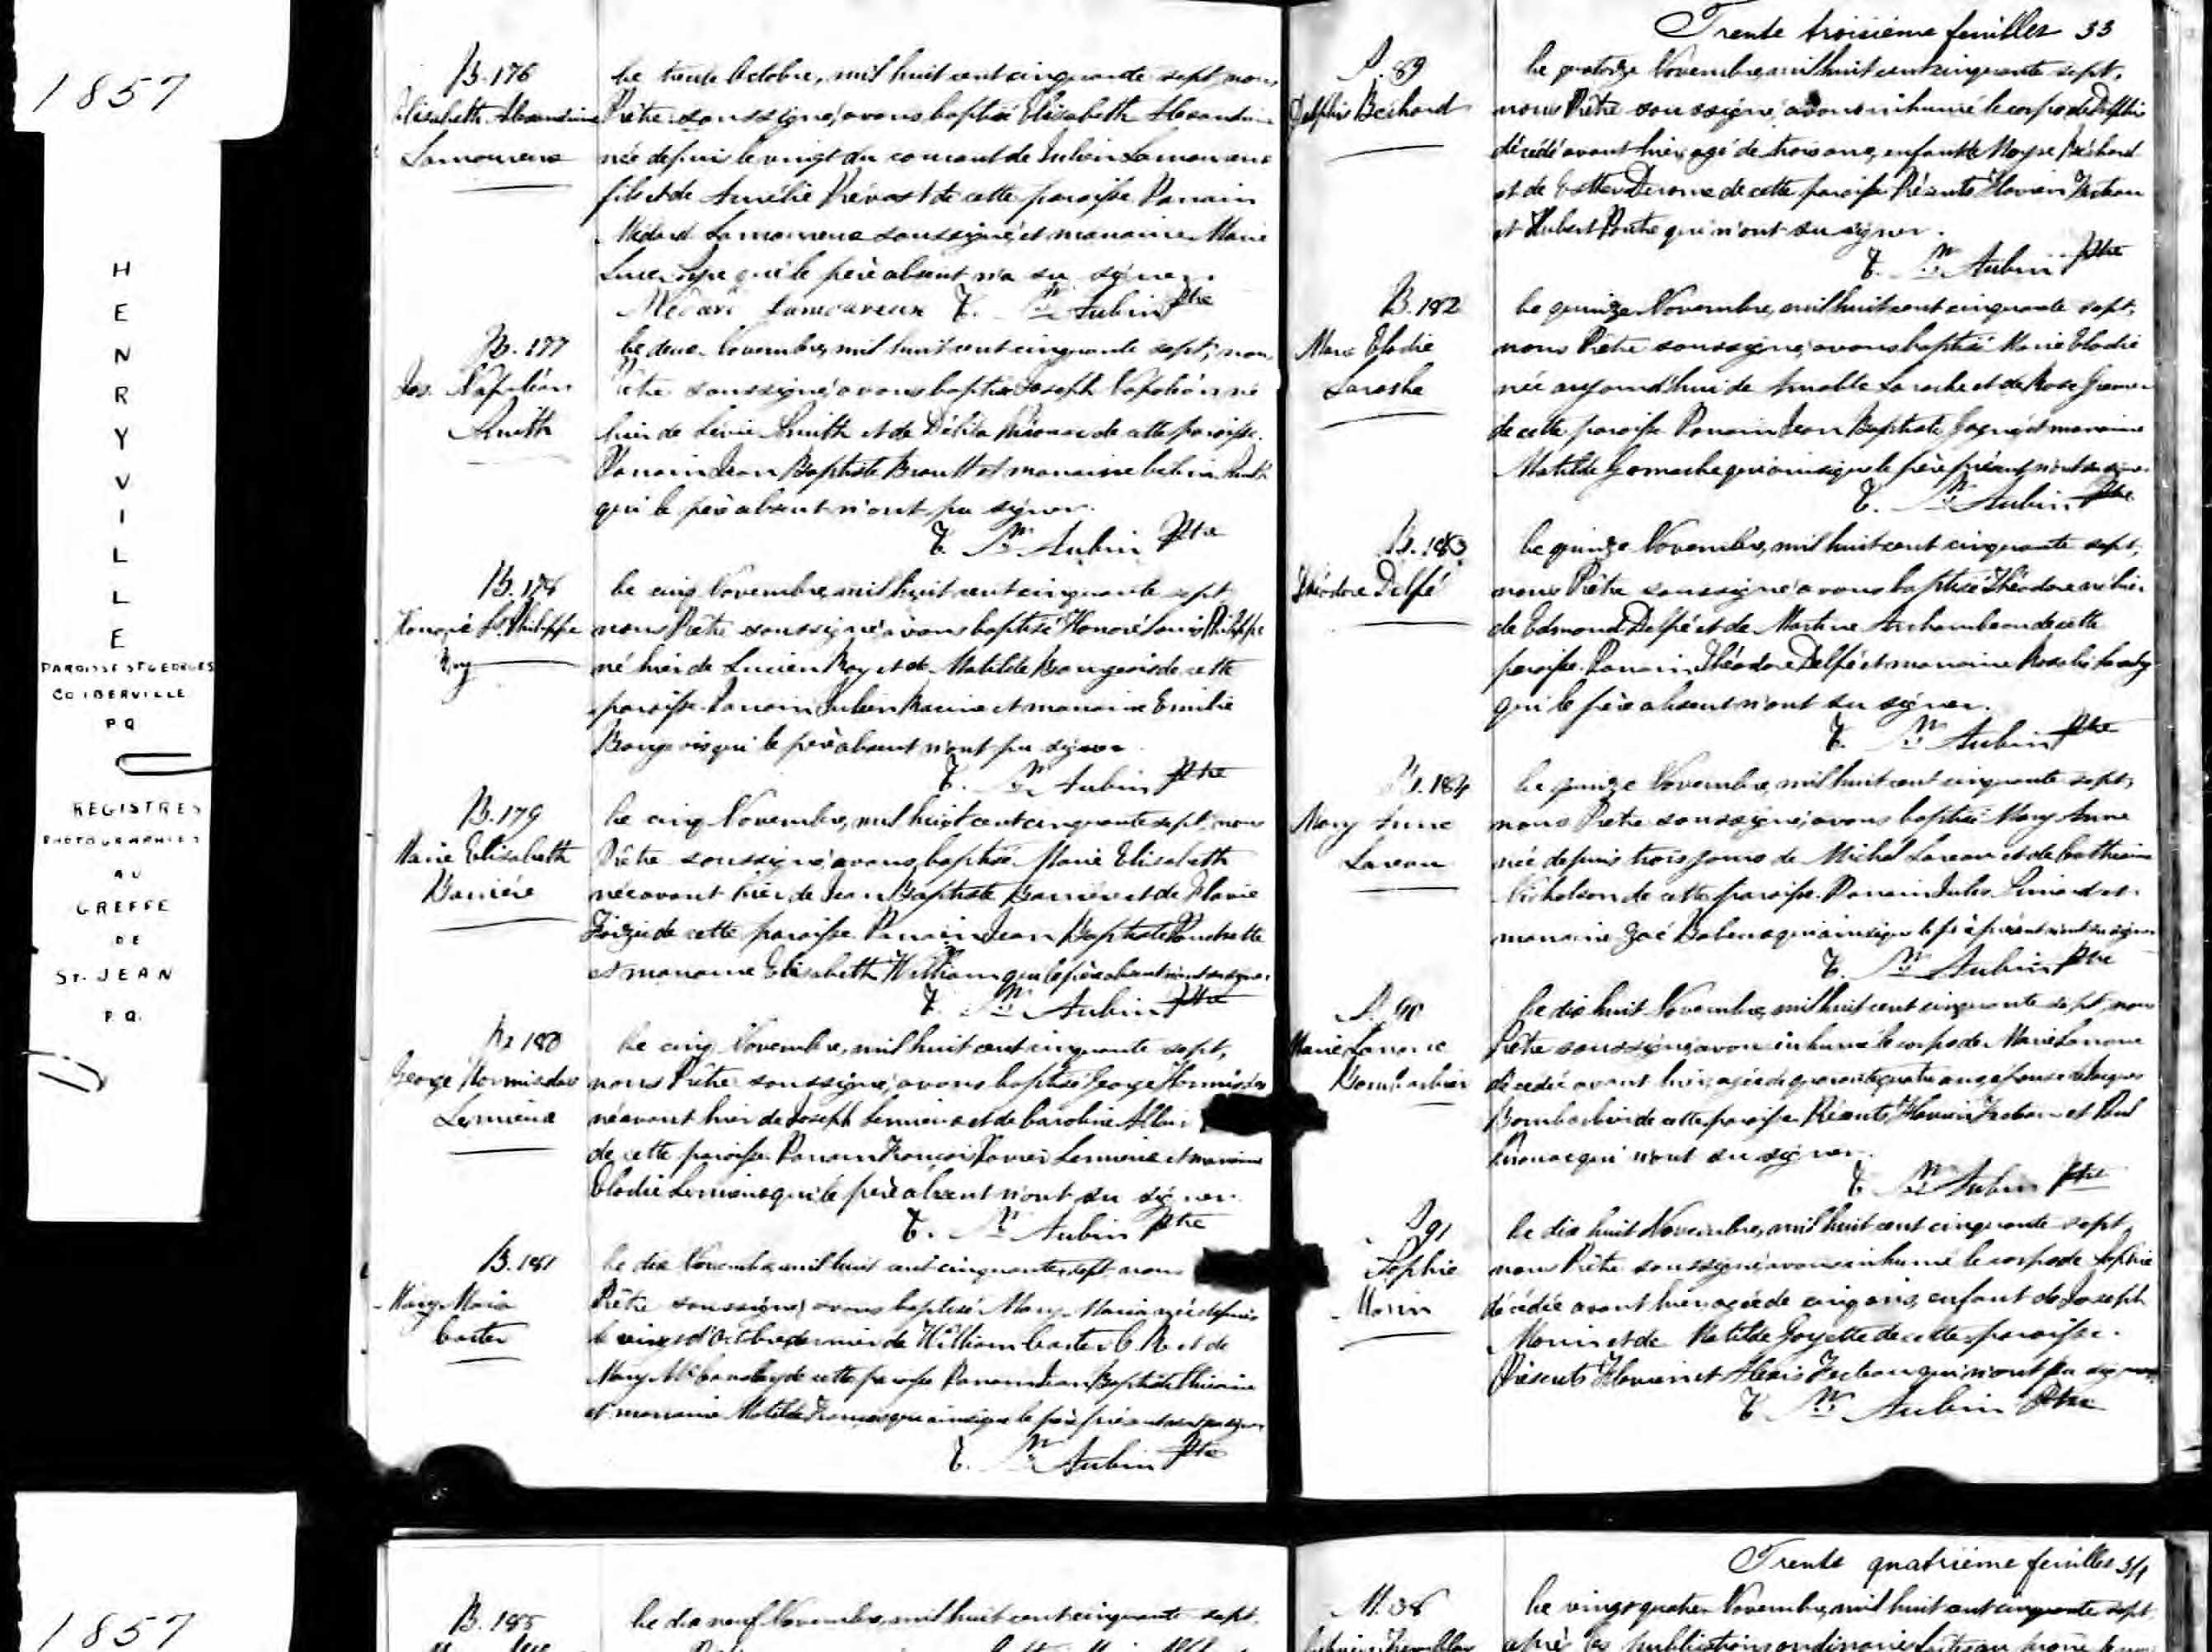 1857
HENRYVILLE
PAROISSE ST GEORGES
CO IBERVILLE
P Q
REGISTRES
PHOTOGRAPHIES
AU
GREFFE
DE
ST. JEAN
P.Q.
B.176
Elisabeth Alexandrine
Lamoureux
Le trente Octobre, mil huit cent cinquante sept, nous
Prêtre soussigné, avons baptisé Elisabeth Alexandrine
née depuis le vingt du courant de Julien Lamoureux
fils et de Aurélie Prévost de cette paroisse. Parrain
Médard Lamoureux soussigné, et marraine Marie
Luce qui le père absent n'a su signer.
Médard Lamoureux T. St Aubin Ptre
B.177
Jos. Napoléon
Smith
Le deux Novembre, mil huit cent cinquante sept, nous
Prêtre soussigné avons baptisé Joseph Napoléon né
hier de Lévi Smith et de Délila de cette paroisse.
Parrain Jean Baptiste Brault et marraine
qui le père absent n'ont pu signer.
T. St Aubin Ptre
B.178
Honoré Ls Philippe
Roy
Le cinq Novembre, mil huit cent cinquante sept,
nous Prêtre soussigné avons baptisé Honoré Louis Philippe
né hier de Lucien Roy et de Matilde Bourgeois de cette
paroisse. Parrain Julien Racine et marraine Emilie
Bourgeois qui le père absent n'ont pu signer.
T. St Aubin Ptre
B.179
Marie Elisabeth
Barrière
Le cinq Novembre, mil huit cent cinquante sept, nous
Prêtre soussigné, avons baptisé Marie Elisabeth
née avant hier de Jean Baptiste Barrière et de Flavie
de cette paroisse. Parrain Jean Baptiste Poudrette
et marraine Elisabeth William qui le père absent n'ont su signer.
T. St Aubin Ptre
B.180
George Hormisdas
Lemieux
Le cinq Novembre, mil huit cent cinquante sept,
nous Prêtre soussigné, avons baptisé George Hormisdas
né avant hier de Joseph Lemieux et de Caroline Allain
de cette paroisse. Parrain François Xavier Lemieux et marraine
Elodie Lemieux qui le père absent n'ont su signer.
T. St Aubin Ptre
B.181
Mary Maria
Carter
Le dix Novembre, mil huit cent cinquante sept, nous
Prêtre soussigné, avons baptisé Mary Maria née depuis
le vingt d'Octobre dernier de William Carter et de
Mary de cette paroisse. Parrain Jean Baptiste
et marraine Matilde qui ainsi que le père présent n'ont pu signer.
T. St Aubin Ptre
Trente troisième feuilles 33
S.89
Delphis Béchard
Le quatorze Novembre, mil huit cent cinquante sept,
nous Prêtre soussigné, avons inhumé le corps de Delphis
décédé avant hier, agé de trois ans, enfant de Moyse Béchard
et de Esther Derome de cette paroisse. Présents Flavien Fecteau
et Hubert qui n'ont su signer.
T. St Aubin Ptre
B.182
Marie Elodie
Laroche
Le quinze Novembre, mil huit cent cinquante sept,
nous Prêtre soussigné, avons baptisé Marie Elodie
née aujourd'hui de Amable Laroche et de Rose
de cette paroisse. Parrain Jean Baptiste Gagné et marraine
Matilde Gamache qui ainsi que le père présent n'ont su signer.
T. St Aubin Ptre
B.183
Théodore Delfé
Le quinze Novembre, mil huit cent cinquante sept,
nous Prêtre soussigné avons baptisé Théodore né hier
de Edmond Delfé et de Martine Archambeau de cette
paroisse. Parrain Théodore Delfé et marraine Rosalie
qui le père absent n'ont su signer.
T. St Aubin Ptre
B.184
Mary Anne
Lareau
Le quinze Novembre, mil huit cent cinquante sept,
nous Prêtre soussigné, avons baptisé Mary Anne
née depuis trois jours de Michel Lareau et de Catherine
Nicholson de cette paroisse. Parrain Jules Simard et
marraine Zoé qui ainsi que le père présent n'ont su signer.
T. St Aubin Ptre
S.90
Marie Lanoue
Bombardier
Le dix huit Novembre, mil huit cent cinquante sept, nous
Prêtre soussigné, avons inhumé le corps de Marie Lanoue
décédée avant hier, agée de quarante quatre ans, épouse de Jacques
Bombardier de cette paroisse. Présents Flavien Fecteau et Paul
qui n'ont su signer.
T. St Aubin Ptre
S.91
Sophie
Morin
Le dix huit Novembre, mil huit cent cinquante sept,
nous Prêtre soussigné, avons inhumé le corps de Sophie
décédée avant hier, agée de cinq ans, enfant de Joseph
Morin et de Matilde Goyette de cette paroisse.
Présents Flavien et Alexis Fecteau qui n'ont pu signer.
T. St Aubin Ptre
1857
B.185
Le dix neuf Novembre, mil huit cent cinquante sept,
Trente quatrième feuilles 34
M.38
Le vingt quatre Novembre, mil huit cent cinquante sept,
après les publications ordinaires